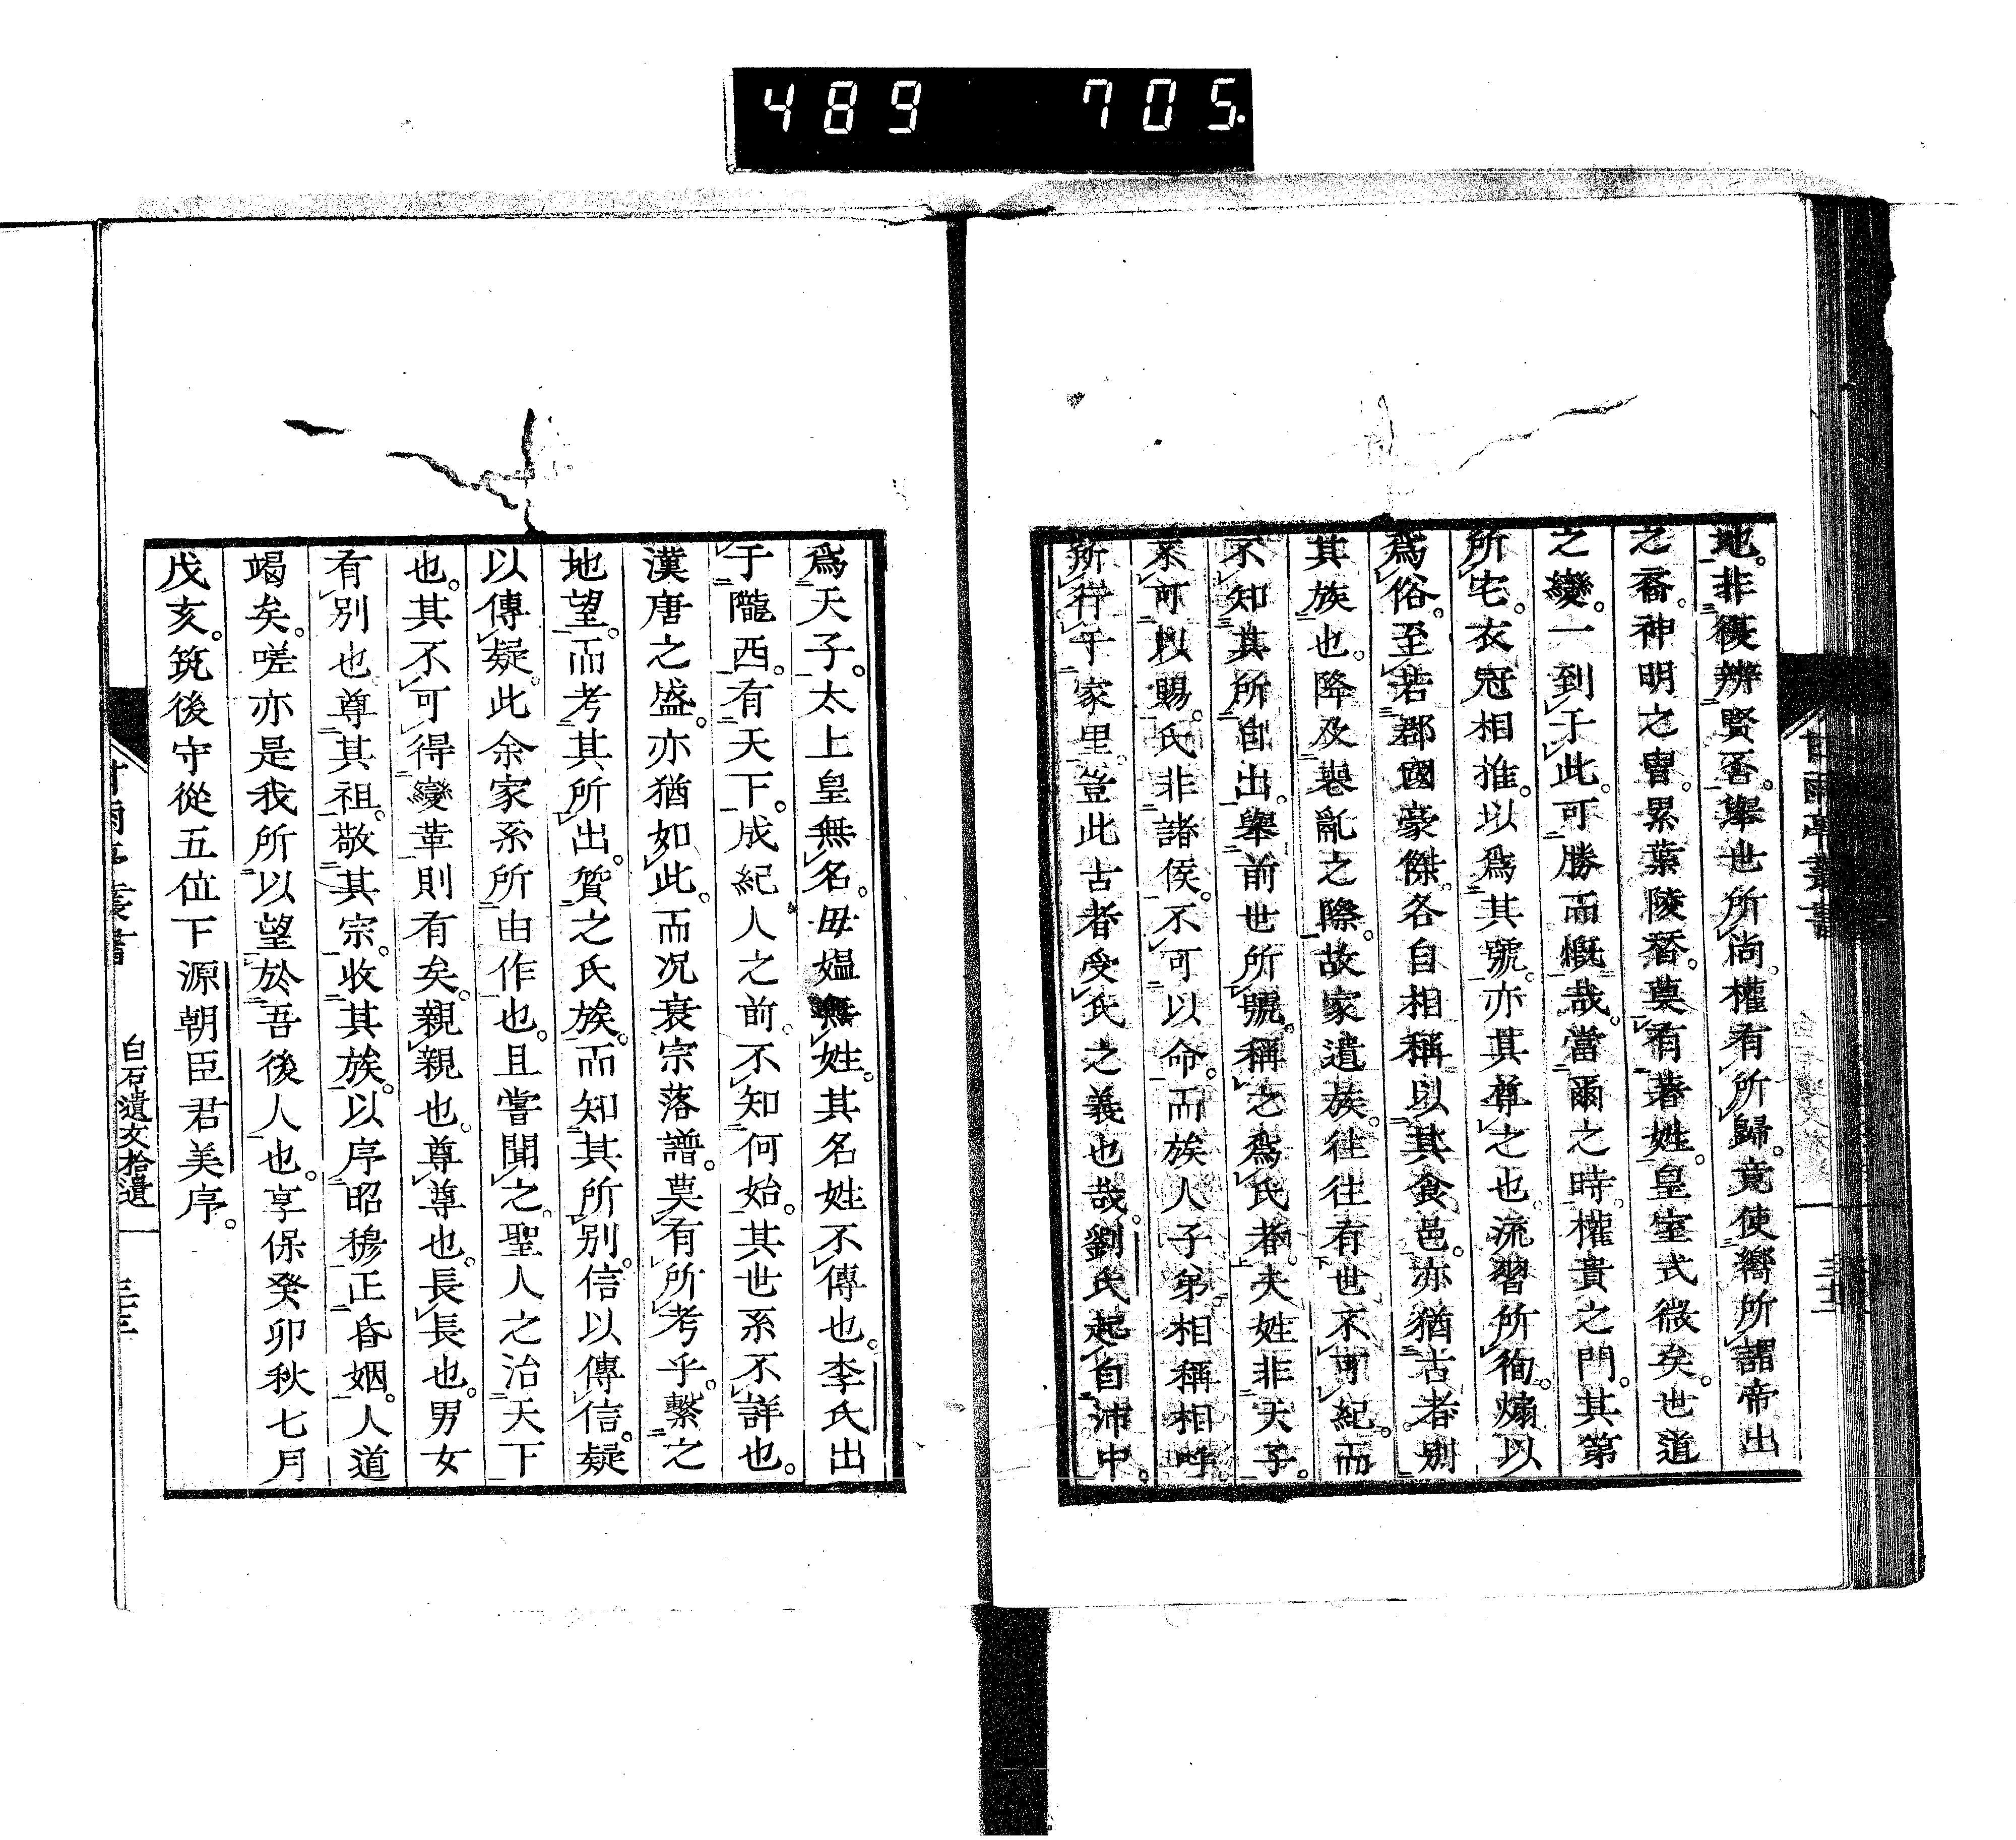 489 705.
地。非復辨賢否。擧世所尚。權有所歸。竟使嚮所謂帝出
之裔。神明之冑。累葉陵替。莫有著姓。皇室式微矣。世道
之變。一到于此。可勝而慨哉。當爾之時。權貴之門。其第
所宅。衣冠相推。以爲其號。亦其尊之也。流習所徇。煽以
爲俗。至若郡國豪傑。各自相稱以其食邑。亦猶古者別
其族也。降及衰亂之際。故家遺族。往往有世不可紀。而
不知其所自出。擧前世所號。稱之爲氏者。夫姓非天子。
不可以賜。氏非諸侯。不可以命。而族人子弟。相稱相呼。
所行于家里。豈此古者受氏之義也哉。劉氏起自沛中。
爲天子。太上皇無名。毋媼無姓。其名姓不傳也。李氏出
于隴西。有天下。成紀人之前。不知何始。其世系不詳也。
漢唐之盛。亦猶如此。而况衰宗落譜。莫有所考乎。繫之
地望。而考其所出。質之氏族。而知其所別。信以傳信。疑
以傳疑。此余家系所由作也。且嘗聞之。聖人之治天下
也。其不可得變革則有矣。親親也。尊尊也。長長也。男女
有別也尊其祖。敬其宗。收其族。以序昭穆正昏姻。人道
竭矣。嗟亦是我所以望於吾後人也。享保癸卯秋七月
戊亥。筑後守從五位下源朝臣君美序。
甘雨亭叢書
白石遺文拾遺
三十三